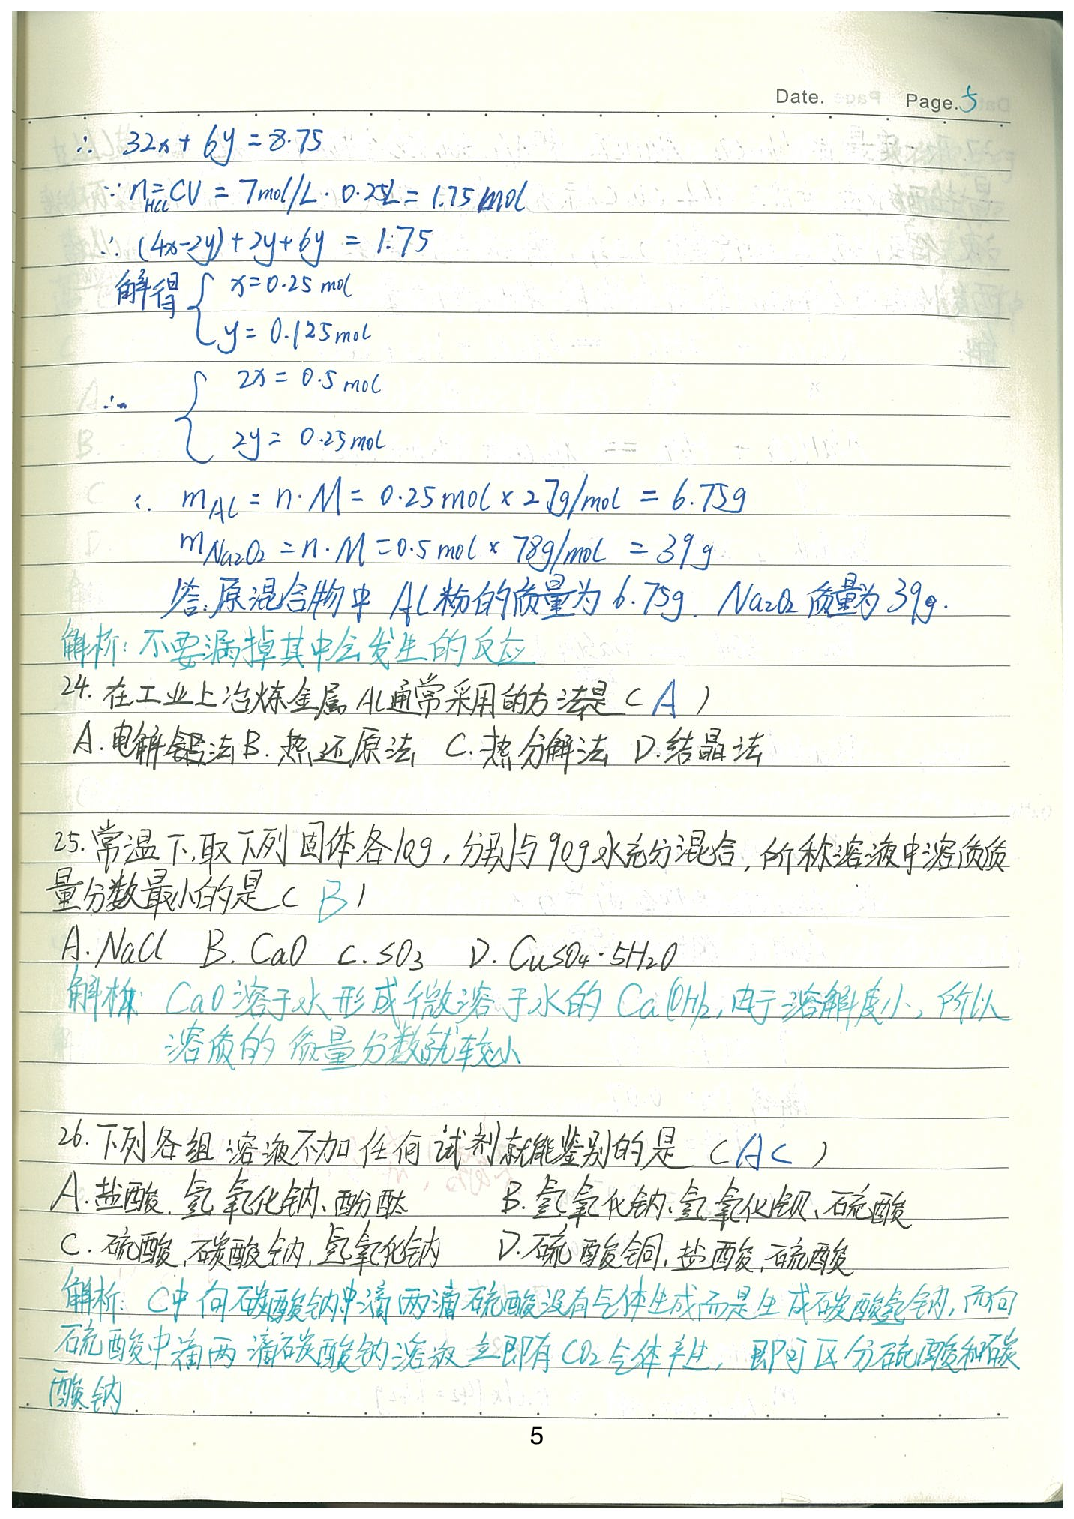 Date. Page.5
∴ 32x + 6y = 8.75
∵ nHCl = CV = 7mol/L · 0.25L = 1.75 mol
∴ (4x-2y)+2y+6y = 1.75
解得 { x=0.25 mol
y= 0.125mol
∴ { 2x = 0.5 mol
2y = 0.25mol
∴ mAl = n·M = 0.25mol × 27g/mol = 6.75g
mNa2O2 = n·M = 0.5 mol × 78g/mol = 39 g
答:原混合物中 Al粉的质量为 6.75g. Na2O2 质量为 39g.
解析: 不要漏掉其中会发生的反应
24. 在工业上冶炼金属 Al通常采用的方法是 ( A )
A.电解法 B. 热还原法 C.热分解法 D.结晶法
25.常温下,取下列固体各10g,分别与90g水充分混合,所称溶液中溶质质
量分数最小的是( B )
A.NaCl B. CaO C. SO3 D. CuSO4·5H2O
解析: CaO溶于水形成微溶于水的 Ca(OH)2,由于溶解度小,所以
溶质的质量分数就较小
26.下列各组溶液不加任何试剂就能鉴别的是 ( AC )
A.盐酸、氢氧化钠、酚酞 B.氢氧化钠、氢氧化钡、硫酸
C.硫酸,碳酸钠,氢氧化钠 D.硫酸铜,盐酸,硫酸
解析: C中向碳酸钠中滴两滴硫酸没有气体生成而是生成碳酸氢钠,而向
硫酸中滴两滴碳酸钠溶液立即有CO2气体产生, 即可区分硫酸和碳
酸钠
5